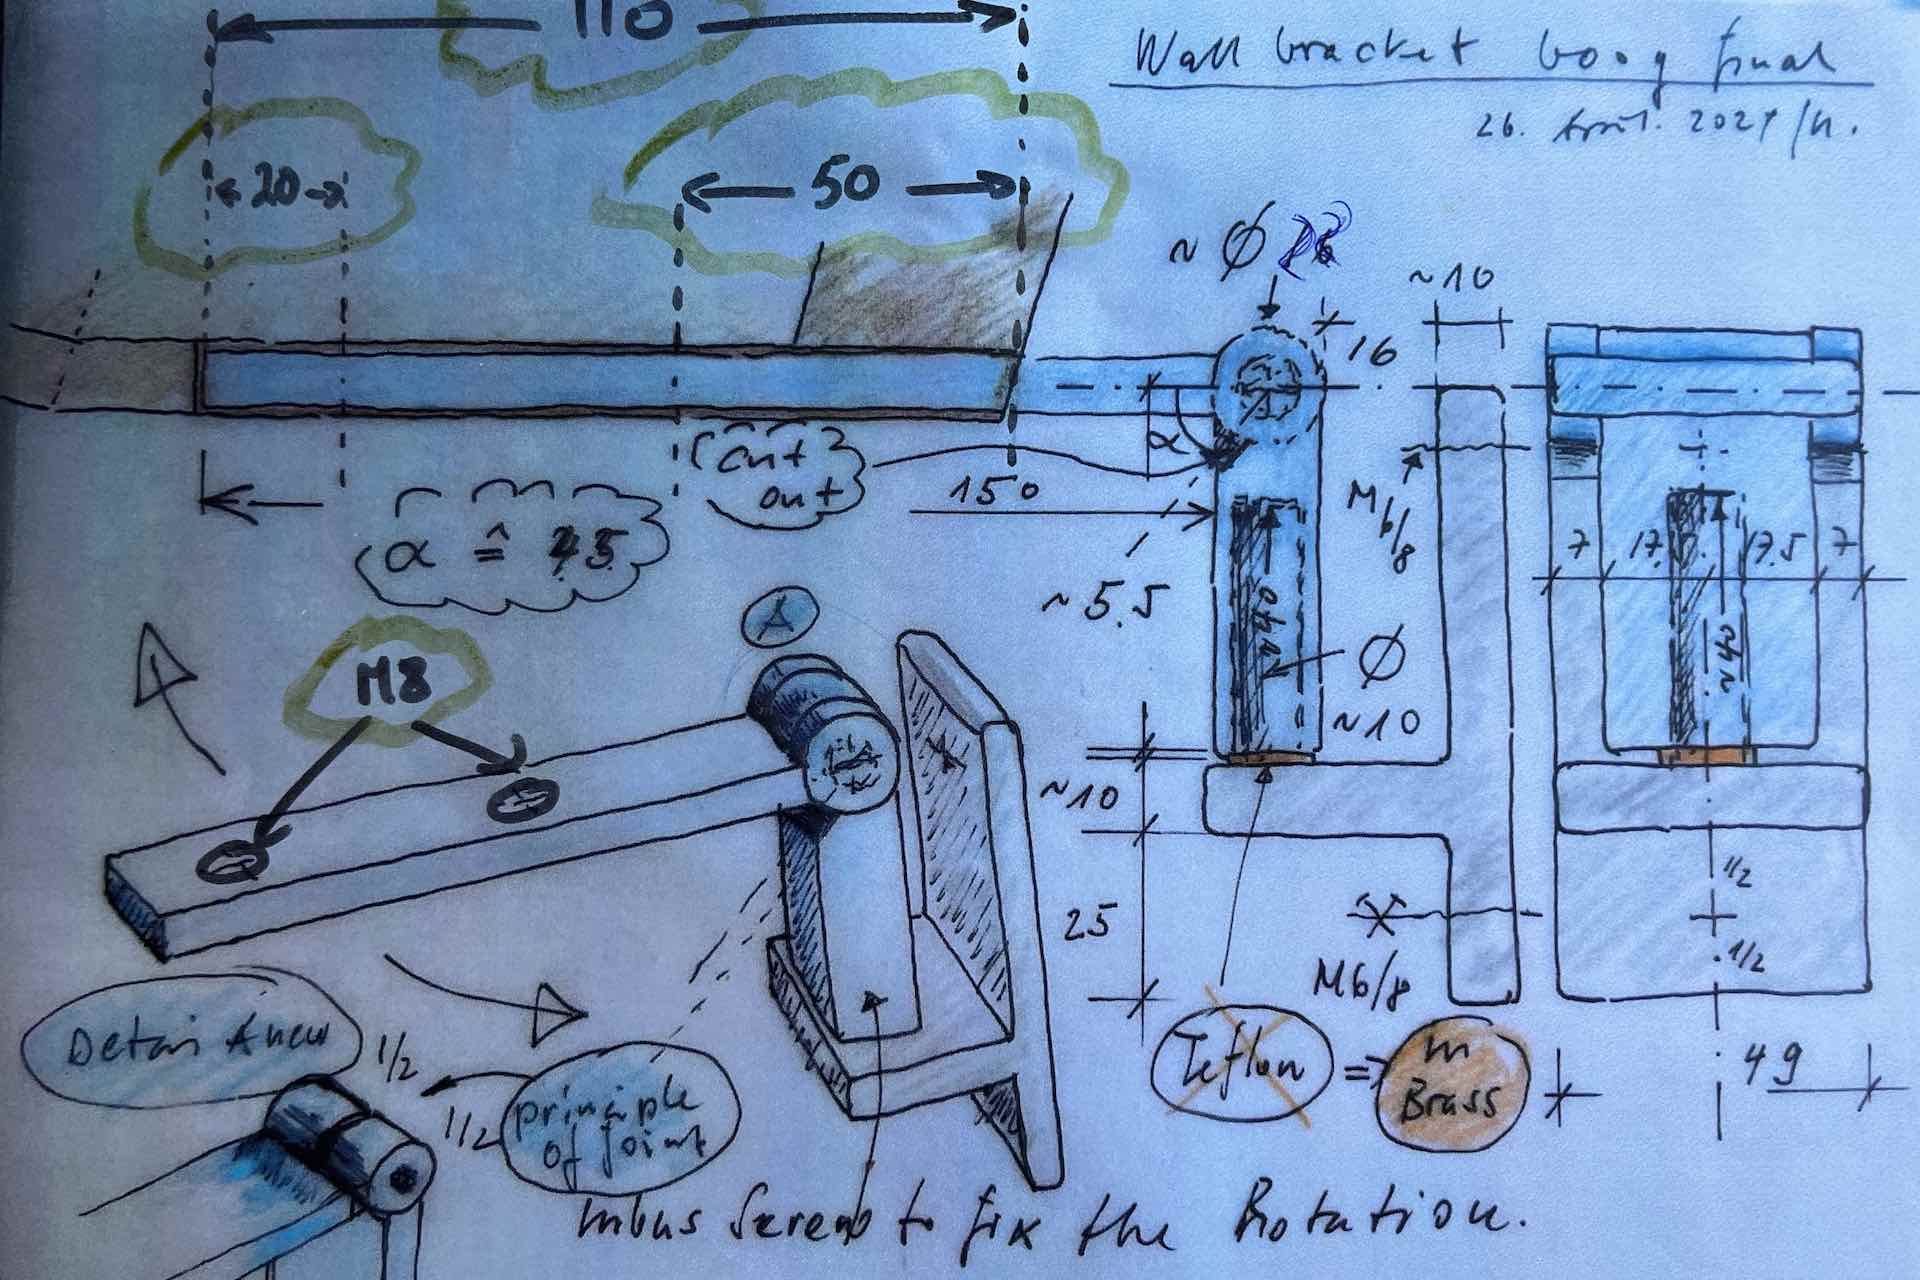 110
Wall bracket boog final
26. April. 2021/H.
20
50
~ Ø
~10
16
cut
out
α
150
α ≙ 45
M6/8
7
17.5
7
~5.5
Ø
~10
A
M8
~10
25
1/2
1/2
M6/8
Detail A new
1/2
1/2
principle
of joint
Teflon
=>
m
Brass
49
Inbus Screw to fix the Rotation.